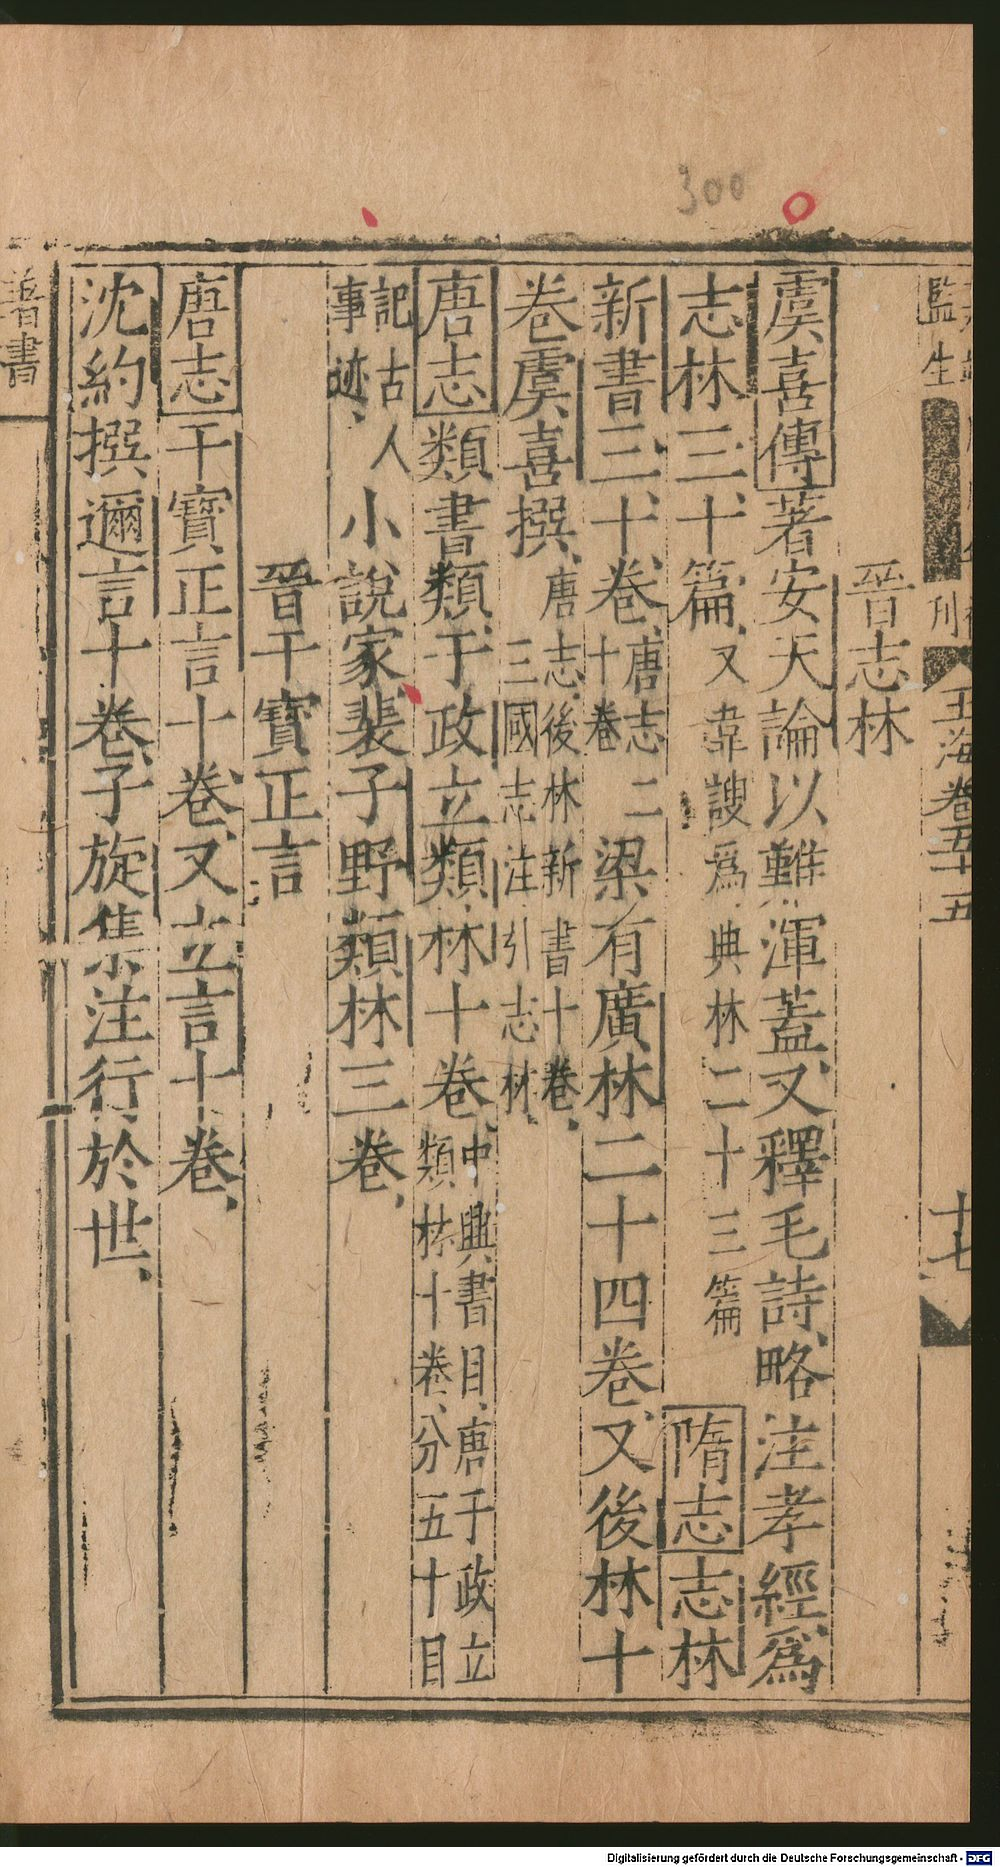 300
監生
刊
玉海卷五十五
十七
晉志林
虞喜傳著安天論以難渾蓋又釋毛詩略注孝經爲
志林三十篇又韋謏爲典林二十三篇 隋志志林
新書三十卷唐志二十卷梁有廣林二十四卷又後林十
卷虞喜撰唐志後林新書十卷三國志注引志林
唐志類書類于政立類林十卷中興書目唐于政立類林十卷分五十目
記古人事迹小說家裴子野類林三卷
晉干寶正言
唐志干寶正言十卷又立言十卷
沈約撰邇言十卷子旋集注行於世
善書
Digitalisierung gefördert durch die Deutsche Forschungsgemeinschaft - DFG